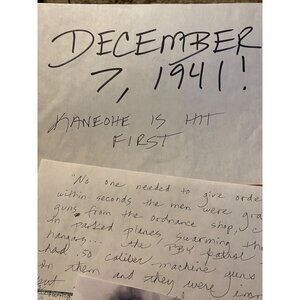 DECEMBER
7, 1941!
KANEOHE IS HIT
FIRST
"No one needed to give orde
within seconds the men were gra
guns from the ordnance shop, c
in parked planes, swarming th
hangars... the PBY patrol
had .50 caliber machine guns
on them and they were